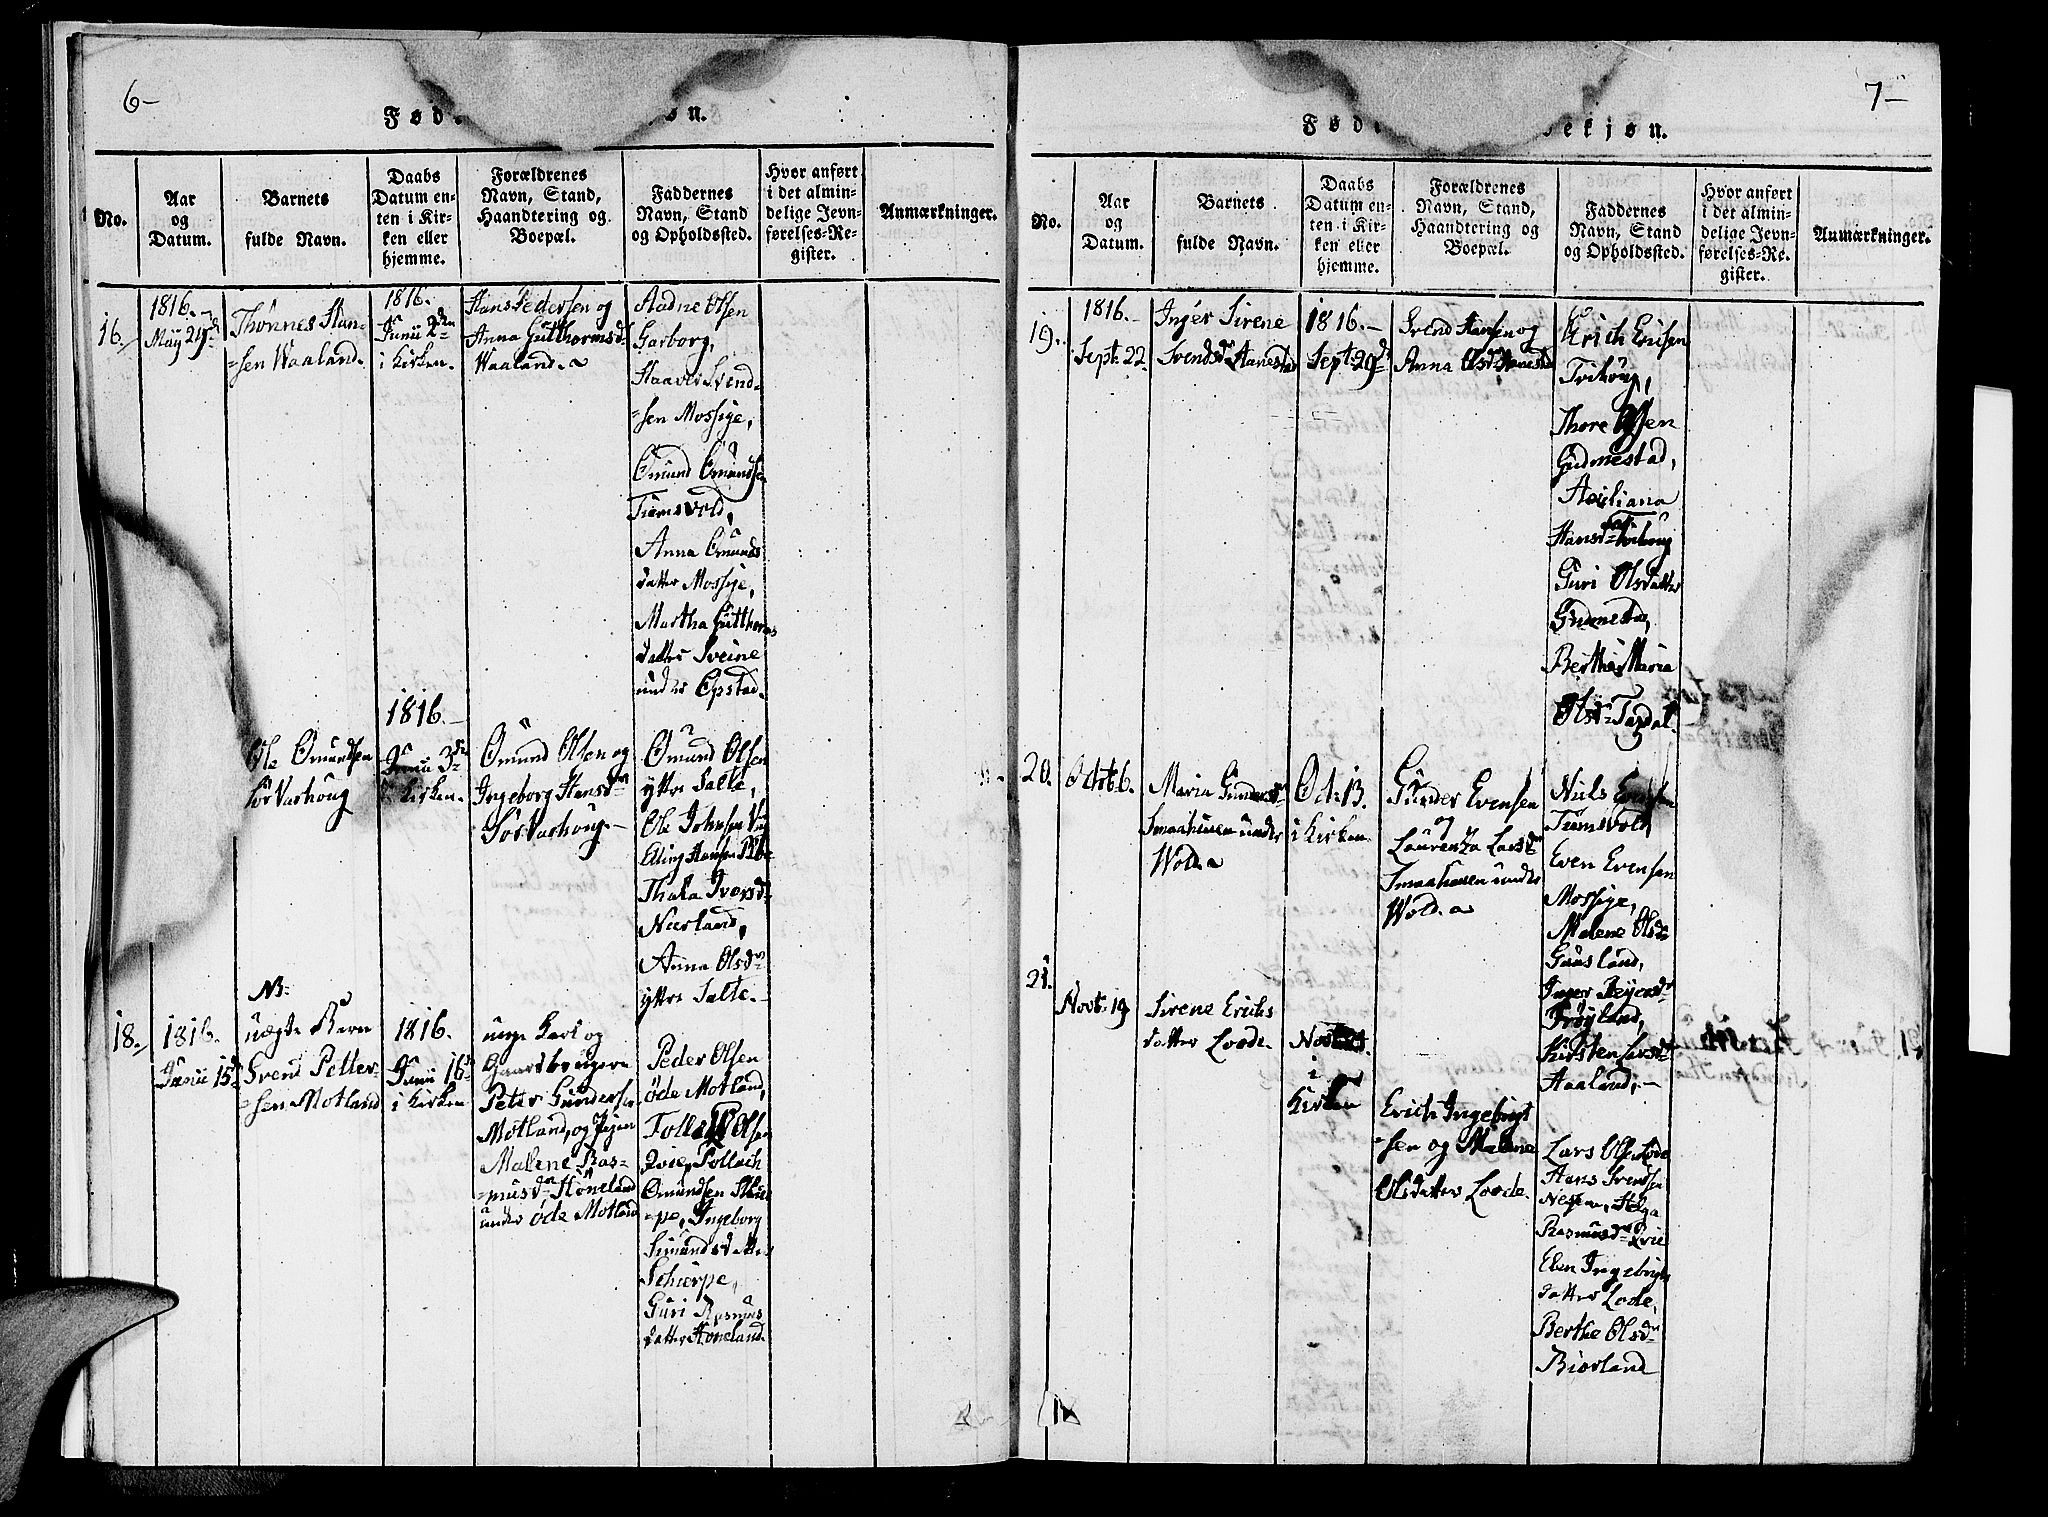 6-
Fød
øn.
No.
Aar
og
Datum.
Barnets
fulde Navn.
Daabs
Datum en-
ten i Kir-
ken eller
hjemme.
Forældrenes
Navn, Stand,
Haandtering og
Boepæl.
Faddernes
Navn, Stand
og Opholdssted.
Hvor anført
i det almin-
delige Jevn-
førelses-Re-
gister.
Anmærkninger.
16.
1816.
May 29d
Thonnes Han-
sen Waaland.
1816.
Junii 2den
i Kirken.
Hans Pedersen og
Anna Gutthormsd
Waaland.
Aadne Olsen
Garborg,
Haaver Svend-
sen Mossige,
Omund Omundsen
Tiemsvold,
Anna Omunds
datter Mossige,
Martha Gutthorms
datter Sveine
under Opstad.
Ole Omundsen
Sör Varhoug
1816.
Junii 3die
i Kirken.
Omund Olsen og
Ingeborg Hansdr
Sör Varhoug.
Omund Olsen
yttre Salte,
Ole Johnsen
Eling Hansen
Thala Iversd
Nærland,
Anna Olsdr
yttre Salte.
18.
1816.
Junii 15d
NB:
uægte Barn
Svend Petter-
sen Motland
1816.
Junii 16d
i Kirken
unge Karl og
Gaardbrugere
Peter Gundersen
Motland, og Pigen
Malene Ras-
musdr Höneland
under öde Motland
Peder Olsen
öde Motland,
Tollef Olsen
Qvie, Tollach
Omundsen Skiær-
pe, Ingeborg
Simundsdatter
Schierpe,
Guri Rasmus
datter Höneland
7-
Føde
vekjøn.
No.
Aar
og
Datum.
Barnets
fulde Navn.
Daabs
Datum en-
ten i Kir-
ken eller
hjemme.
Forældrenes
Navn, Stand,
Haandtering og
Boepæl.
Faddernes
Navn, Stand
og Opholdssted.
Hvor anført
i det almin-
delige Jevn-
førelses-Re-
gister.
Anmærkninger.
19.
1816.
Sept: 22.
Inger Sirene
Svendsdr Aanestad
1816.
Sept: 29d
Svend Hansen og
Anna Olsdr Aanestad
Erich Erichsen
Tvihoug,
Thore Olsen
Gudmestad,
Axeliana
Hansdr Tvihoug
Guri Olsdatter
Gudmestad,
Bertha Maria
Olsdr Taxdal.
20.
Octobr 6.
Maria Gundersdr
Smaahuuen under
Wold.
Oct: 13.
i Kirken
Gunder Evensen
og
Laurenza Larsdr
Smaahuuen under
Wold.
Niels Evensen
Tiemsvold,
Even Evensen
Mossige,
Malene Olsdr
Gausland,
Inger Reyersdr
Fröyland,
Kirsten Larsdr
Aaland,
21.
Novb: 19.
Sirene Erichs
datter Lode.
i
Kirken
Erich Ingebrigt
sen og Malene
Olsdatter Lode.
Lars Olsen Lode
Hans Svendsen
Nesem, Helga
Rasmusdr Qvie
Elen Ingebrigts
datter Lode,
Berthe Olsdr
Biorland